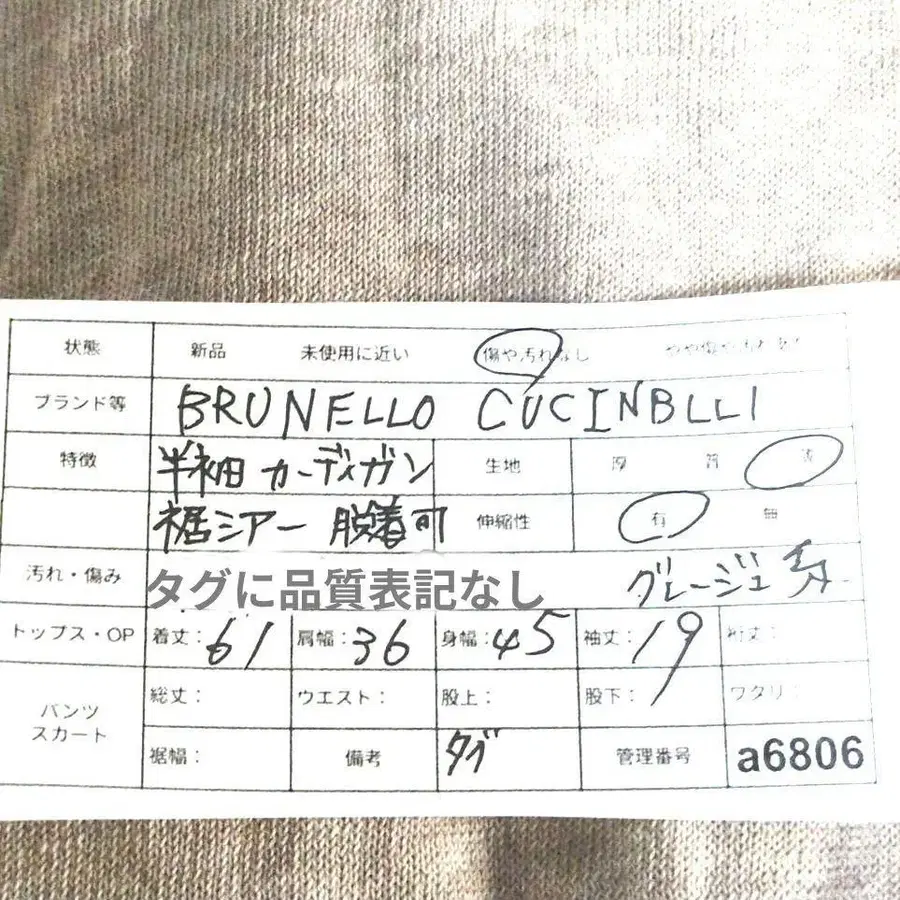 状態 新品 未使用に近い 傷や汚れなし やや傷や汚れあり
ブランド等 BRUNELLO CUCINBLLI
特徴 半袖 カーディガン 生地 厚 普 薄
裾シアー 脱着可 伸縮性 有 無
汚れ・傷み タグに品質表記なし グレージュ
トップス・OP 着丈: 61 肩幅: 36 身幅: 45 袖丈: 19 裄丈:
パンツ スカート 総丈: ウエスト: 股上: 股下: ワタリ:
裾幅: 備考 タグ 管理番号 a6806